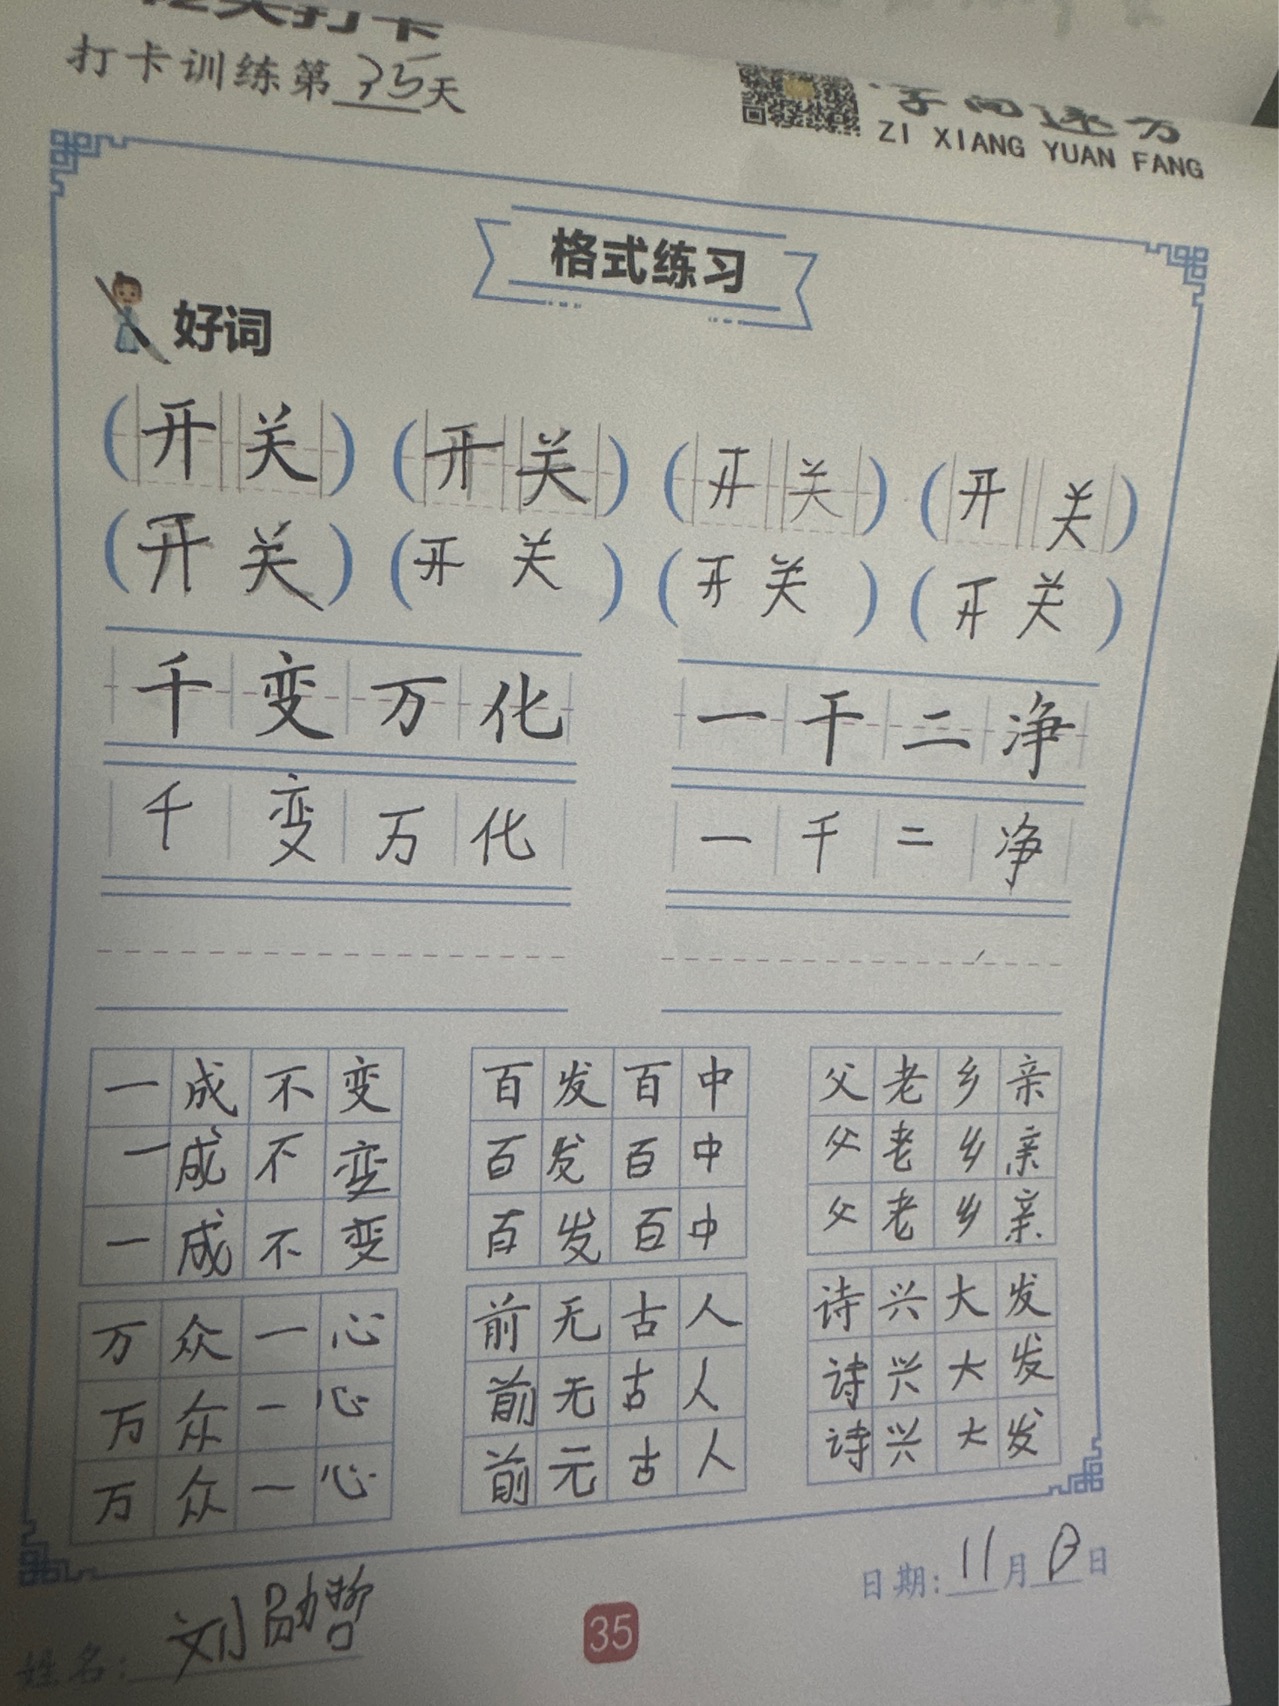 打卡训练第35天
字向远方
ZI XIANG YUAN FANG
格式练习
好词
(开关) (开关) (开关) (开关)
(开关) (开关) (开关) (开关)
千变万化 一干二净
千变万化 一千二净
一成不变 百发百中 父老乡亲
一成不变 百发百中 父老乡亲
一成不变 百发百中 父老乡亲
万众一心 前无古人 诗兴大发
万众一心 前无古人 诗兴大发
万众一心 前元古人 诗兴大发
日期:11月13日
姓名:刘勋哲
35